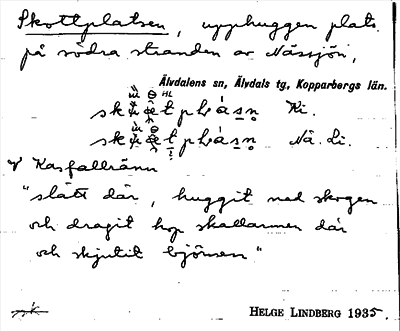 Skottplatsen, upphuggen plats
på södra stranden av Nässjön,
Älvdalens sn, Älvdals tg, Kopparbergs län.
Ki.
Nä. Li.
V Kasfallränn
"slätt där, huggit ned skogen
och dragit hop skallarmen där
och skjutit björnen"
HELGE LINDBERG 1935.